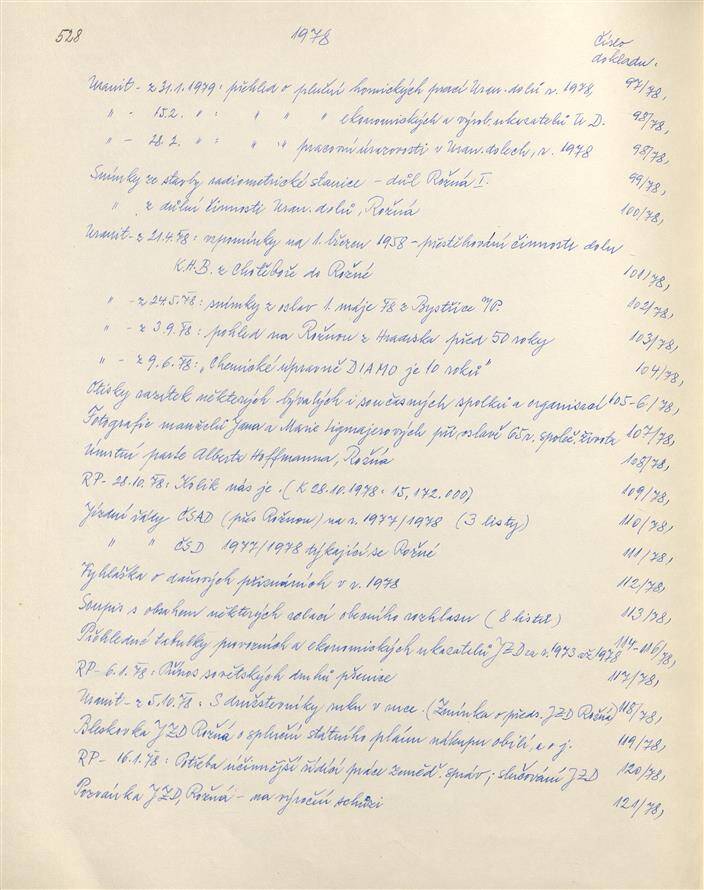 528 1978 Číslo
dokladu.
Uranit - z 31.1.1979: přehled o plnění hornických prací Uran. dolů r. 1978, 97/78,
" - 15.2. " : " " " ekonomických a výrob. ukazatelů U.D. 98/78,
" - 28.2. " : " " pracovní úrazovosti v Uran. dolech, r. 1978 98/78,
Snímky ze stavby radiometrické stanice - důl Rožná I. 99/78,
" z důlní činnosti Uran. dolů, Rožná 100/78,
Uranit - z 21.4.78: vzpomínky na 1. březen 1958 - přestěhování činnosti dolu
K.H.B. z Chotěboře do Rožné 101/78,
" - z 24.5.78: snímky z oslav 1. máje 78 z Bystřice n/P. 102/78,
" - z 3.9.78: pohled na Rožnou z Hradiska před 50 roky 103/78,
" - z 9.6.78: "Chemické úpravně DIAMO je 10 roků" 104/78,
Otisky razítek některých bývalých i současných spolků a organisací 105-6/78,
Fotografie manželů Jana a Marie Sigmajerových při oslavě 65 r. společ. života 107/78,
Úmrtní parte Alberta Hoffmanna, Rožná 108/78,
RP - 28.10.78: Kolik nás je. (K 28.10.1978: 15,172.000) 109/78,
Jízdní řády ČSAD (přes Rožnou) na r. 1977/1978 (3 listy) 110/78,
" " ČSD 1977/1978 týkající se Rožné 111/78,
Vyhláška o daňových přiznáních v r. 1978 112/78,
Soupis s obsahem některých relací obecního rozhlasu (8 listů) 113/78,
Přehledné tabulky provozních a ekonomických ukazatelů JZD za r. 1973 až 1978 114-116/78,
RP - 6.1.78: Přínos sovětských druhů pšenice 117/78,
Uranit - z 5.10.78: S družstevníky ruku v ruce. (Zmínka o předs. JZD Rožná) 118/78,
Bleskovka JZD Rožná o splnění státního plánu nákupu obilí, a o j. 119/78,
RP - 16.1.78: Potřeba účinnější řídící práce zeměd. správ; slučování JZD 120/78,
Pozvánka JZD, Rožná - na výroční schůzi 121/78,